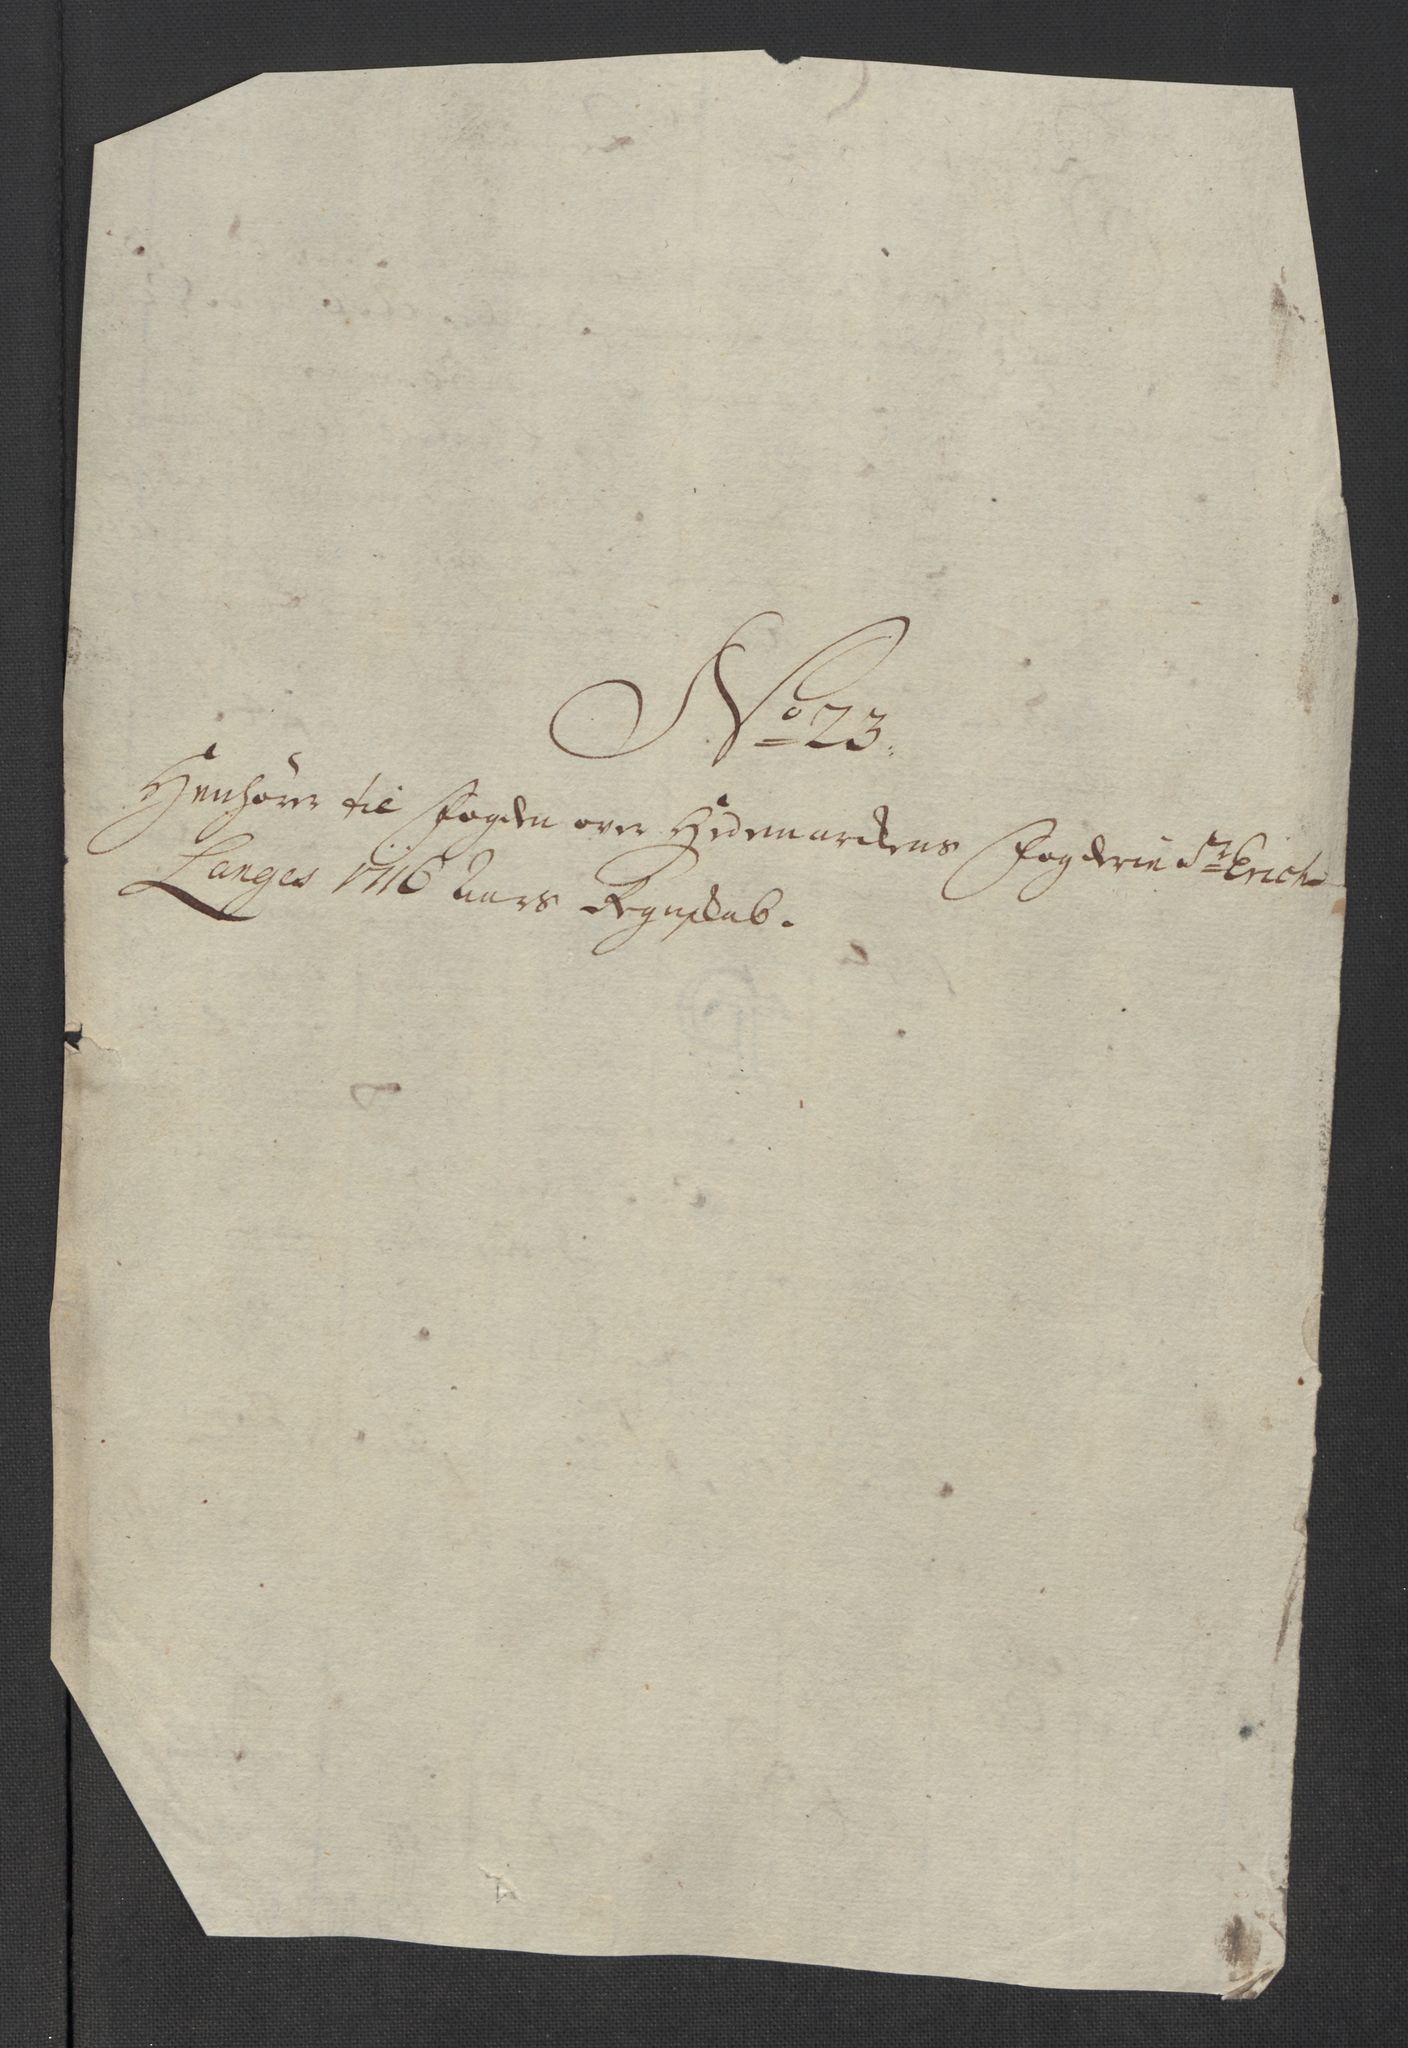 No 23.
Henhører til Fogden over Hedemarckens Fogderie Sr Erich
Langes 1716 Aars Regnskab.